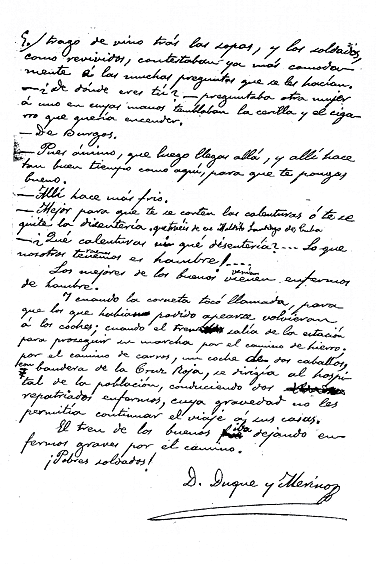 5./ trago de vino trás las sopas, y los soldados,
como revividos, contestaban ya más comoda-
mente á las muchas preguntas que se les hacían.
—¿De dónde eres tú? —preguntaba otra mujer
á uno en cuyas manos temblaban la cerilla y el ciga-
rro que quería encender.
—De Burgos.
—Pues ánimo, que luego llegas allá, y allí hace
tan buen tiempo como aquí, para que te pongas
bueno.
—Allí hace más frio.
—Mejor para que te se corten las calenturas ó te se
quite la disentería. que traes de ese Maldito Santiago de Cuba
—¿Qué calenturas ni qué disentería?... Lo que
nosotros tenemos es hambre!...
Los mejores de los buenos venían enfermos
de hambre.
Y cuando la corneta tocó llamada, para
que los que habían podido apearse volvieran
á los coches; cuando el tren salía de la estación
para proseguir su marcha por el camino de hierro,
por el camino de carros, un coche de dos caballos,
con bandera de la Cruz Roja, se dirigía al hospi-
tal de la población, conduciendo dos
repatriados enfermos, cuya gravedad no les
permitía continuar el viaje á sus casas.
El tren de los buenos iba dejando en-
fermos graves por el camino.
¡Pobres soldados!
D. Duque y Merino